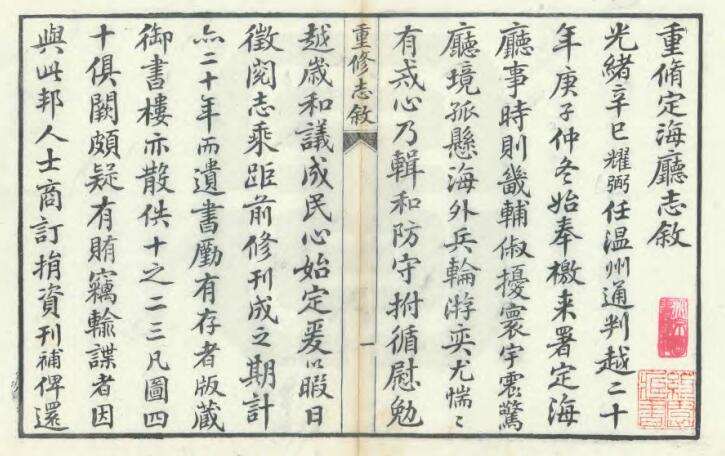 重脩定海廳志敘
光緒辛巳耀弼任温州通判越二十
年庚子仲冬始奉檄来署定海
廳事時則畿輔俶擾寰宇震驚
廳境孤懸海外兵輪游奕尤惴〻
有戒心乃輯和防守拊循慰勉
重修志敘
一
越歲和議成民心始定爰以暇日
徵閱志乘距前修刊成之期計
二十年而遺書尠有存者版藏
御書樓亦散佚十之二三凡圖四
十俱闕頗疑有賄竊輸諜者因
與此邦人士商訂捐資刊補俾還